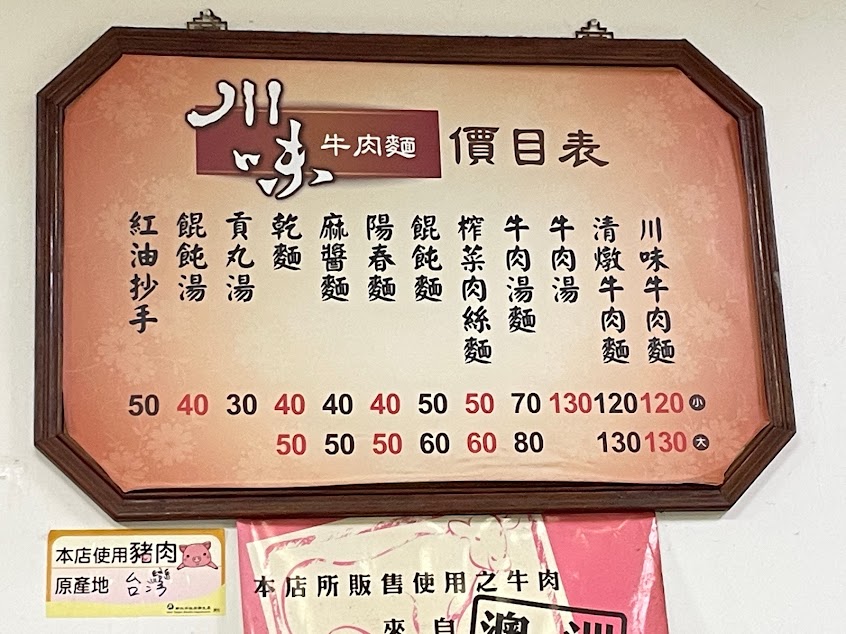 川味牛肉麵 價目表
川味牛肉麵
清燉牛肉麵
牛肉湯
牛肉湯麵
榨菜肉絲麵
餛飩麵
陽春麵
麻醬麵
乾麵
貢丸湯
餛飩湯
紅油抄手
50 40 30 40 40 40 50 50 70 130 120 120 小
50 50 50 60 60 80 130 130 大
本店使用豬肉
原產地 台灣
本店所販售使用之牛肉
來自澳洲